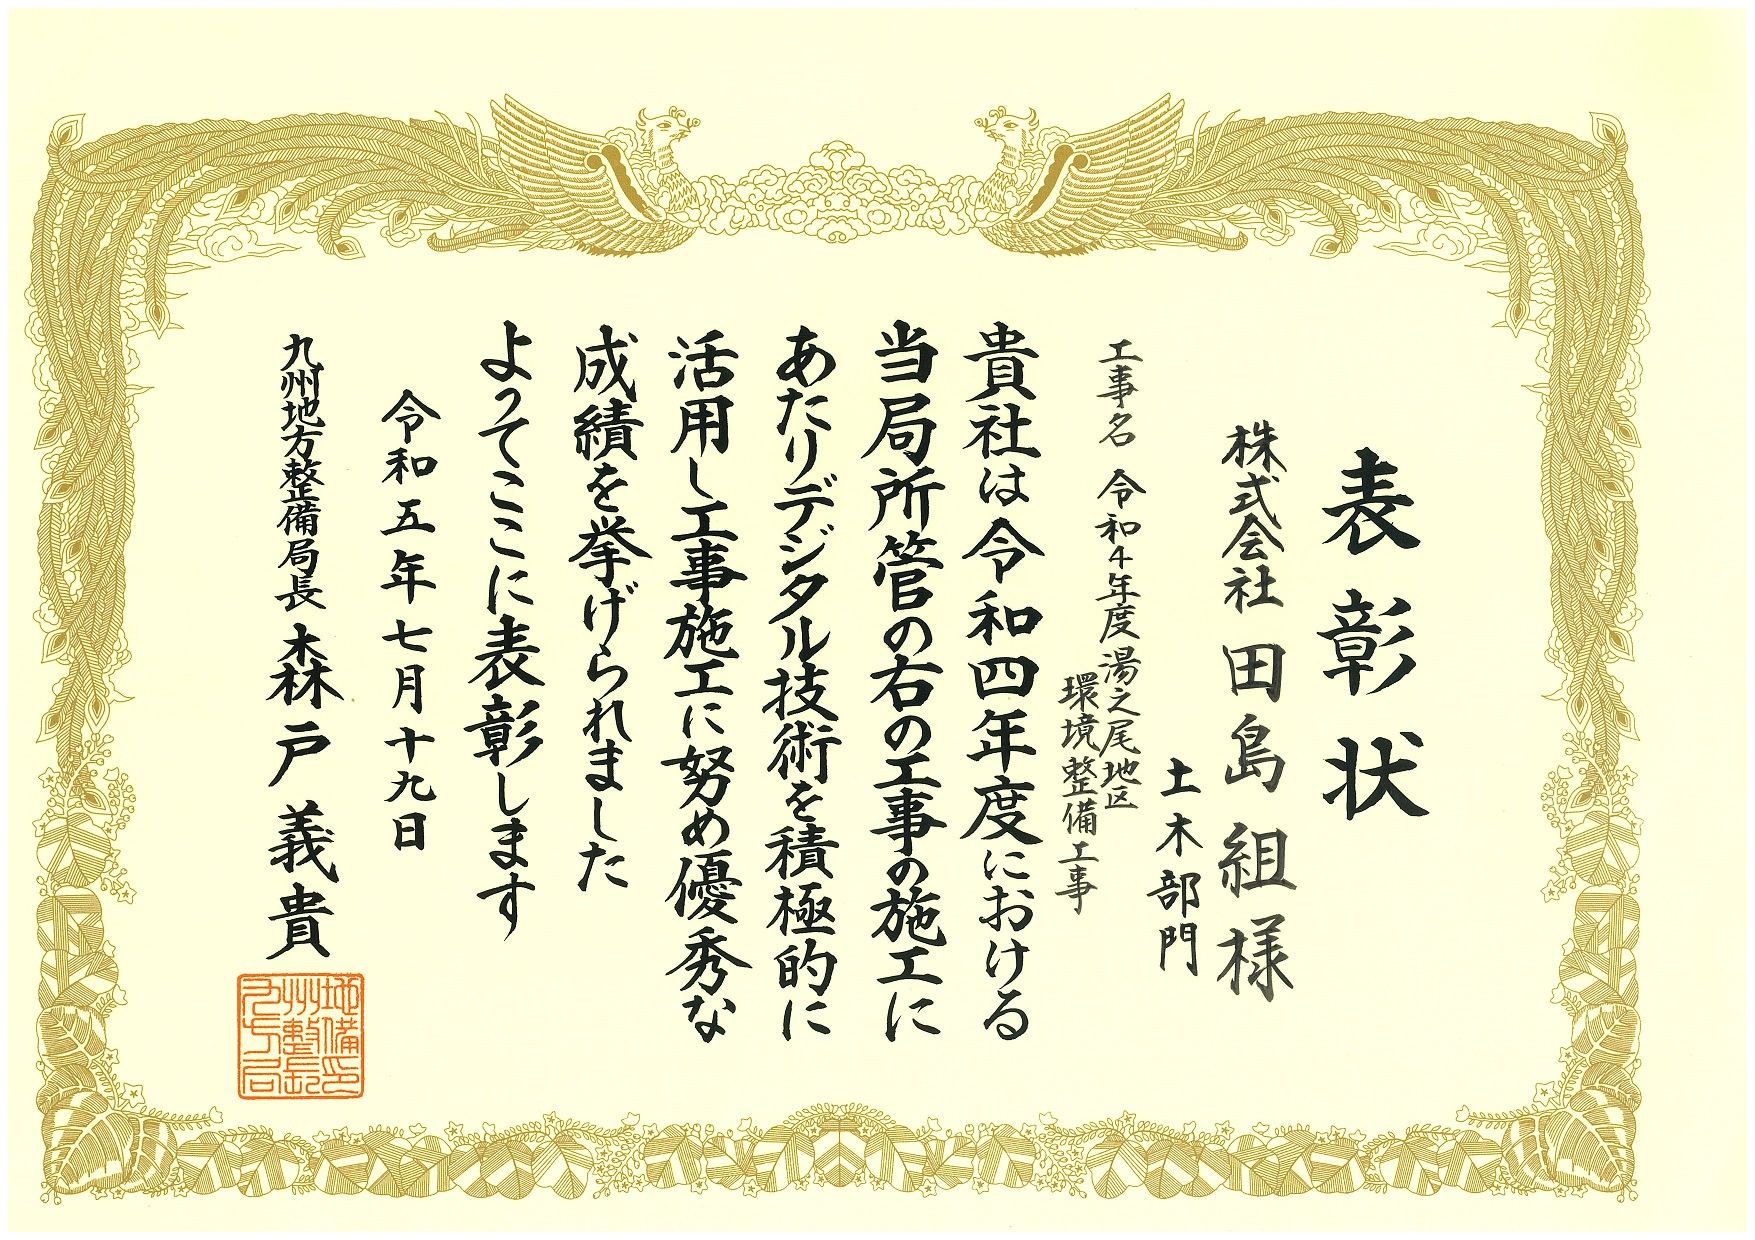 表彰状
株式会社 田島組様
土木部門
工事名 令和4年度湯之尾地区
環境整備工事
貴社は令和四年度における
当局所管の右の工事の施工に
あたりデジタル技術を積極的に
活用し工事施工に努め優秀な
成績を挙げられました
よってここに表彰します
令和五年七月十九日
九州地方整備局長 森戸義貴